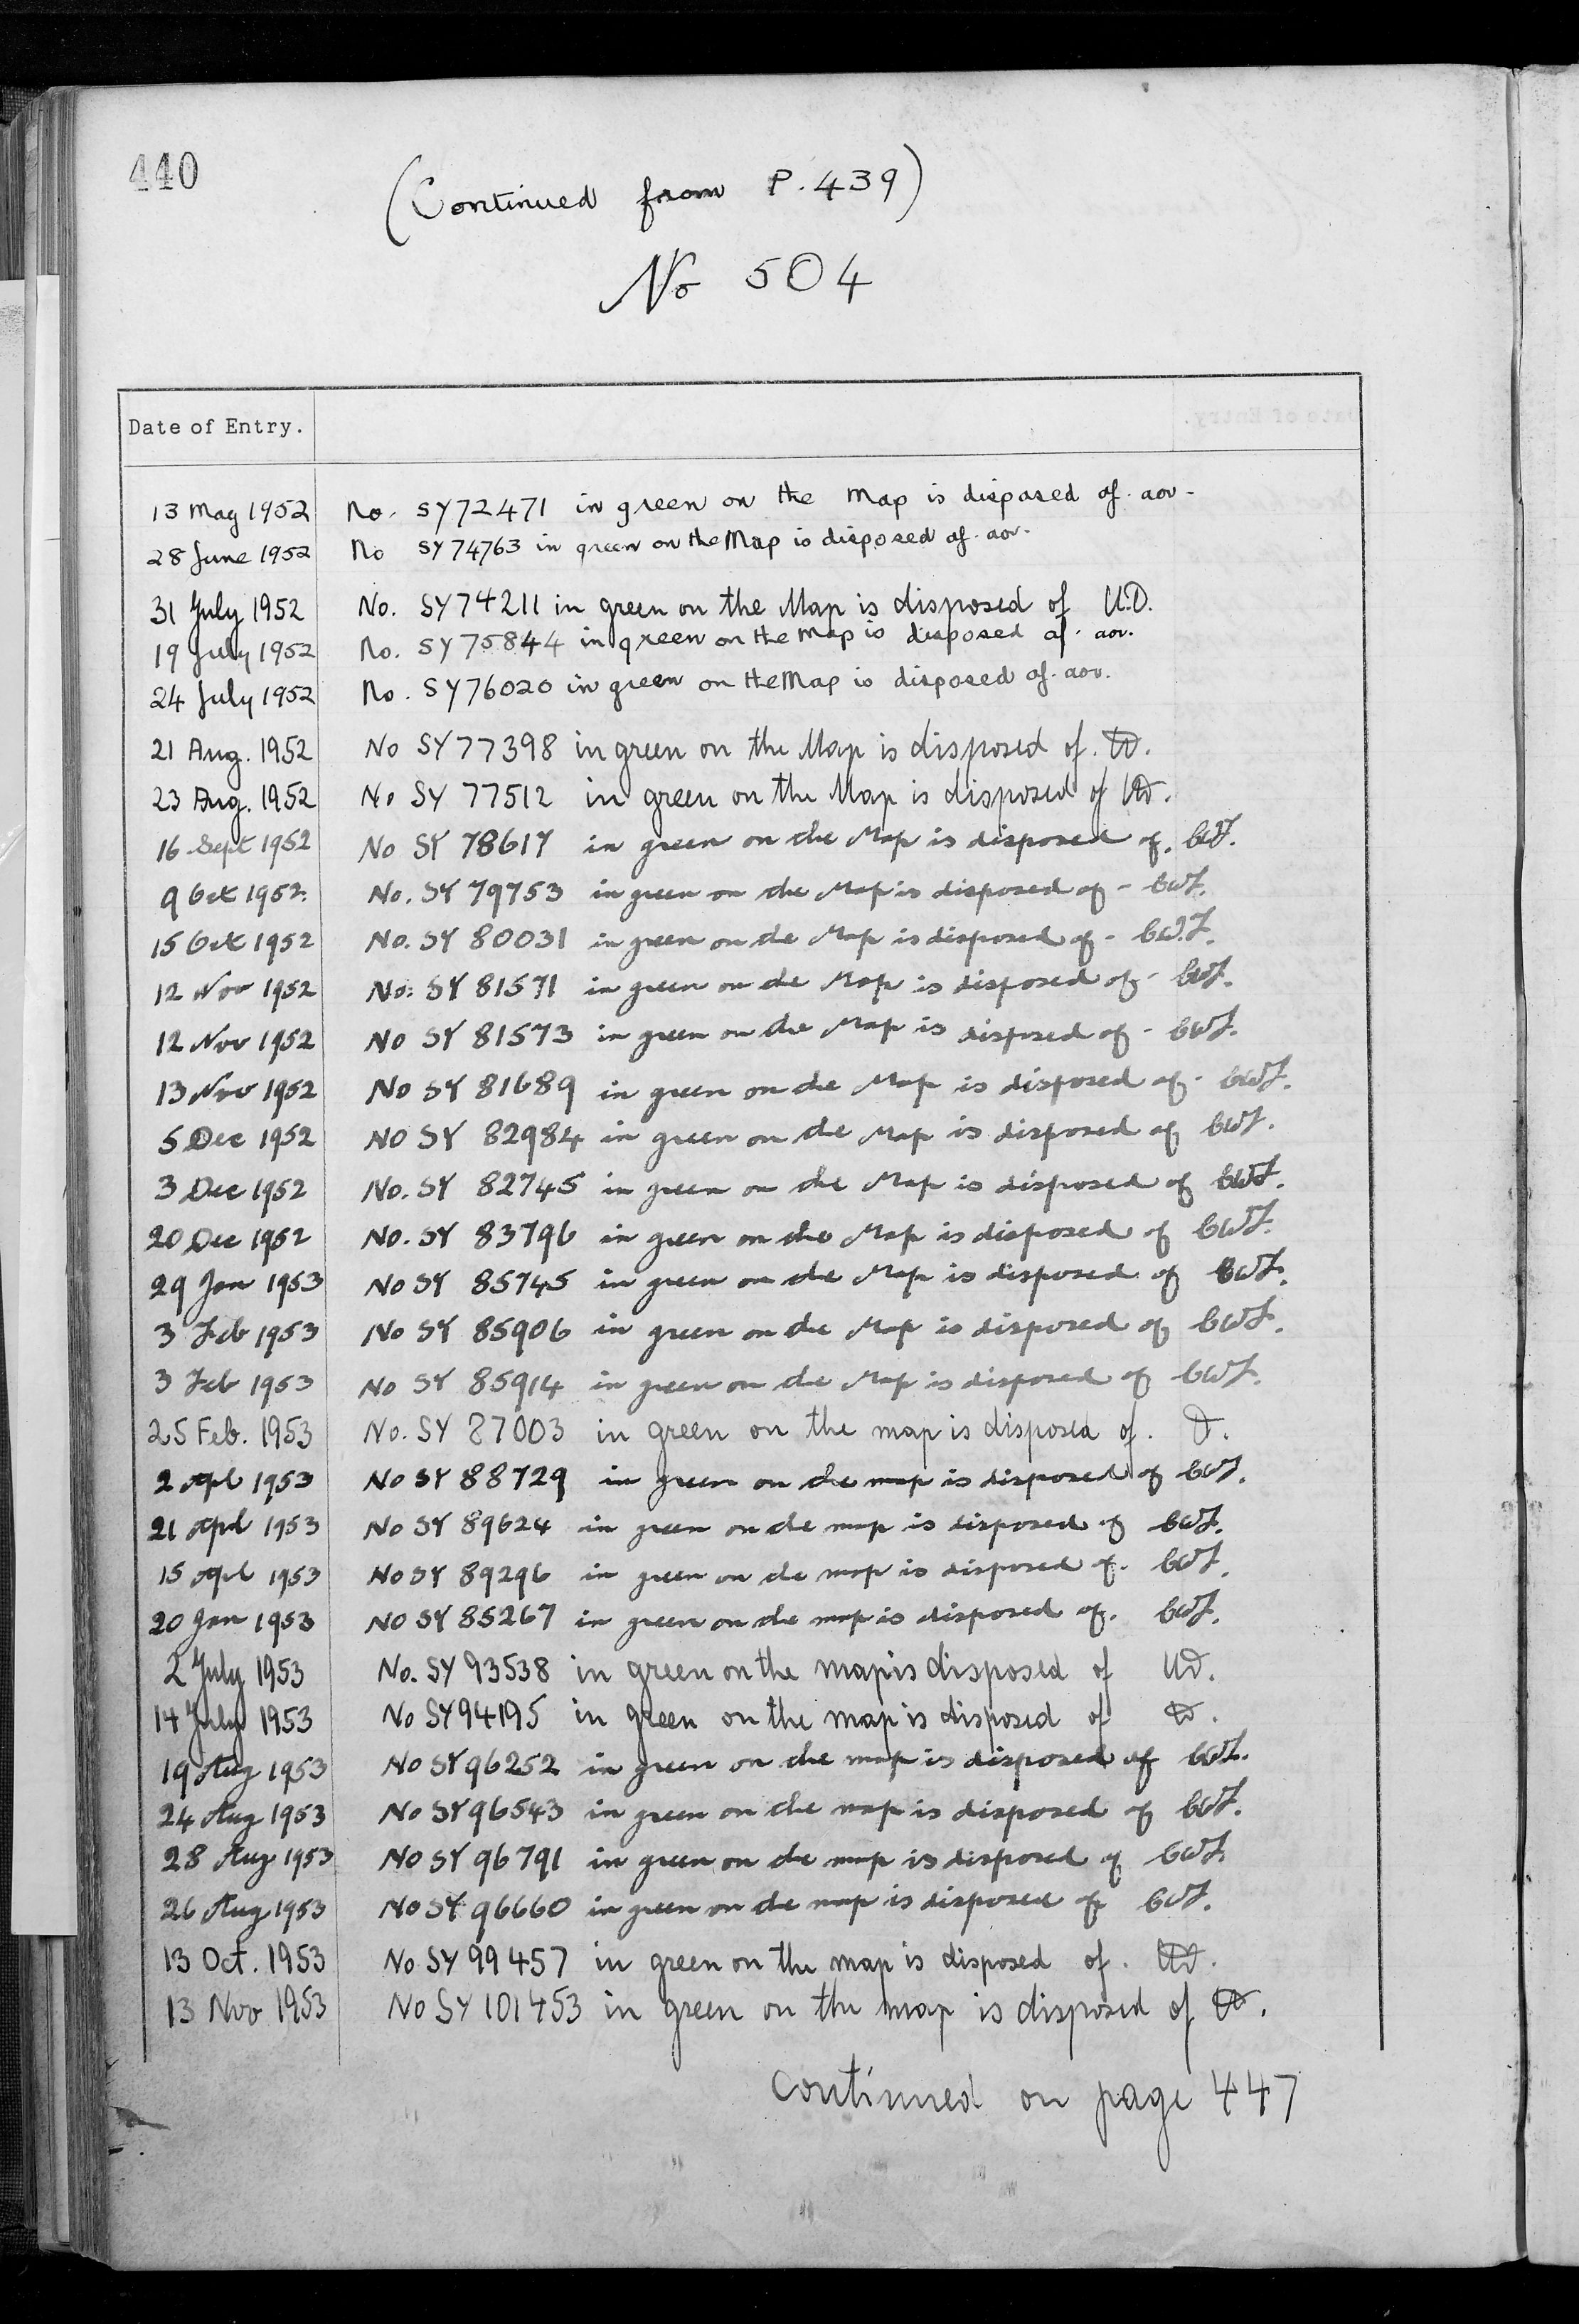 440
(Continued from P. 439)
No 504
Date of Entry.
13 May 1952 No. SY72471 in green on the Map is disposed of. aov.
28 June 1952 No SY74763 in green on the Map is disposed of. aov.
31 July 1952 No. SY74211 in green on the Map is disposed of U.D.
19 July 1952 No. SY75844 in green on the Map is disposed of. aov.
24 July 1952 No. SY76020 in green on the Map is disposed of. aov.
21 Aug. 1952 No SY77398 in green on the Map is disposed of.
23 Aug. 1952 No SY 77512 in green on the Map is disposed of UD.
16 Sept 1952 No SY 78617 in green on the Map is disposed of.
9 Oct 1952. No. SY 79753 in green on the Map is disposed of -
15 Oct 1952 No. SY 80031 in green on the Map is disposed of -
12 Nov 1952 No. SY 81571 in green on the Map is disposed of -
12 Nov 1952 No SY 81573 in green on the Map is disposed of -
13 Nov 1952 No SY 81689 in green on the Map is disposed of -
5 Dec 1952 No SY 82984 in green on the Map is disposed of
3 Dec 1952 No. SY 82745 in green on the Map is disposed of
20 Dec 1952 No. SY 83796 in green on the Map is disposed of
29 Jan 1953 No SY 85745 in green on the Map is disposed of
3 Feb 1953 No SY 85906 in green on the Map is disposed of
3 Feb 1953 No SY 85914 in green on the Map is disposed of
25 Feb. 1953 No. SY 87003 in green on the map is disposed of.
2 Apl 1953 No SY 88729 in green on the map is disposed of
21 Apl 1953 No SY 89624 in green on the map is disposed of
15 Apl 1953 No SY 89296 in green on the map is disposed of.
20 Jan 1953 No SY 85267 in green on the map is disposed of.
2 July 1953 No. SY 93538 in green on the map is disposed of UD.
14 July 1953 No SY94195 in green on the map is disposed of
19 Aug 1953 No SY 96252 in green on the map is disposed of
24 Aug 1953 No SY 96543 in green on the map is disposed of
28 Aug 1953 No SY 96791 in green on the map is disposed of
26 Aug 1953 No SY 96660 in green on the map is disposed of
13 Oct. 1953 No SY 99457 in green on the map is disposed of.
13 Nov 1953 No SY 101453 in green on the map is disposed of
Continued on page 447